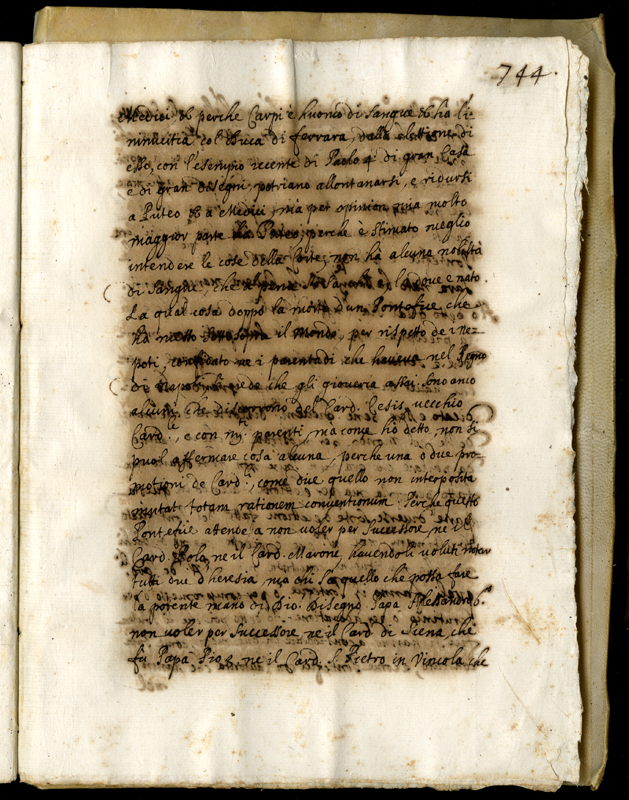 744.
Medici et perche Carpi è huomo di sangue et hà l'i-
nimicitia col Duca di Ferrara, dalla elettione di
esso, con l'esempio recente di Paolo 4. di gran Casa
e di gran disegni, potriano allontanarsi, e ridursi
a Puteo et a Medici, mà per opinion mia molto
maggior parte hà Puteo, perche è stimato meglio
intendere le cose della Corte, non hà alcuna nobiltà
di sangue, che dipende et è nato.
La qual cosa doppo la morte d'un Pontefice che
hà messo sottosopra il mondo, per rispetto de i ne-
poti, confidato ne i parentadi che haveva nel Regno
di Napoli, si crede che gli gioveria assai. Sono anco
alcuni che discorrono del Card. Cesis vecchio
Card.le, e con m.ti parenti, ma come hò detto, non si
puol affermare cosa alcuna, perche una ò due pro-
motioni de Card.li, come due quello non interposita
mutat totam rationem conventionum. Perche questo
Pontefice attende a non voler per Successore, ne il
Card. Polo, ne il Card. Marone, havendoli voluti notar
tutti due d'heresia, mà chi sa quello che possa fare
la potente mano di Dio. Disegnò Papa Alessandro 6.
non voller per Successore, ne il Card. di Siena, che
fù Papa Pio, ne il Card. S. Pietro in Vincola, che